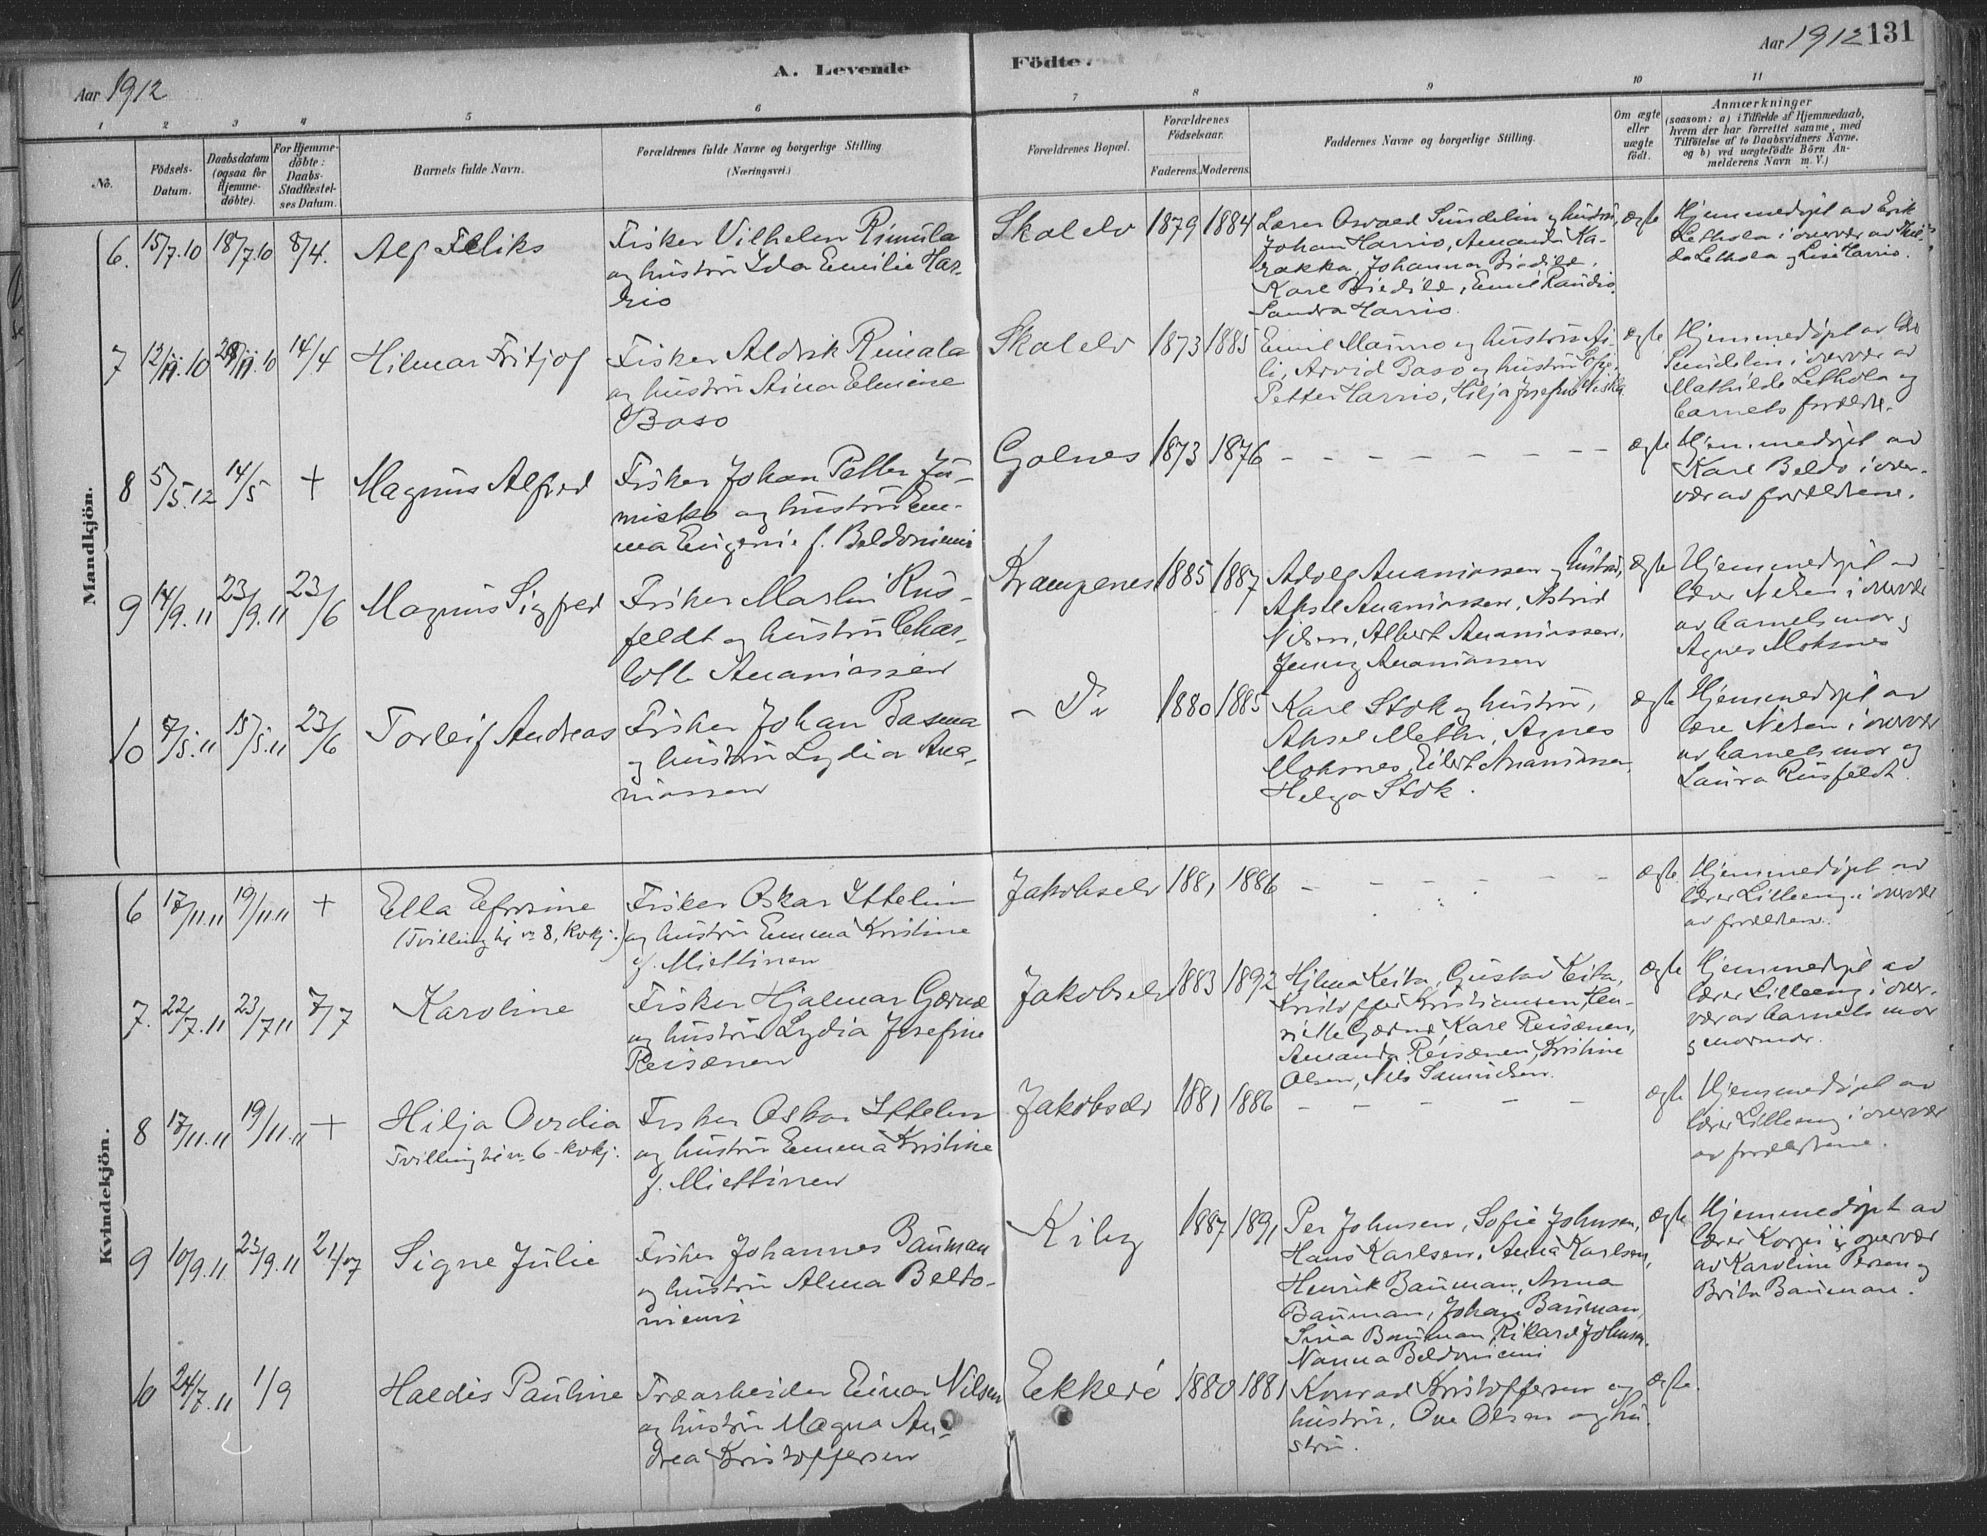 Aar 1912
A. Levende
Födte.
Aar 1912 131
1 2 3 4 5 6 7 8 9 10 11
No.
Födsels-
Datum.
Daabsdatum
(ogsaa for
Hjemme-
döbte).
For Hjemme-
döbte:
Daabs-
Stadfæstel-
ses Datum.
Barnets fulde Navn.
Forældrenes fulde Navne og borgerlige Stilling
(Næringsvei.)
Forældrenes Bopæl.
Forældrenes
Födselsaar.
Faderens. Moderens.
Faddernes Navne og borgerlige Stilling.
Om ægte
eller
uægte
födt.
Anmærkninger
(saasom: a) i Tilfælde af Hjemmedaab,
hvem der har forrettet samme, med
Tilföielse af to Daabsvidners Navne.
og b) ved uægtefödte Börn An-
melderens Navn m. V.)
Mandkjön.
6. 15/7.10 18/7.10 8/4. Alf Feliks
Fisker Vilhelm Rimala
og hustru Ida Emilie Har-
rio
Skalelv 1879 1884
Lærer Osvald Sundelin og hustru,
Johan Harrio, Amanda Ka-
rakka, Johanna
Karl Emil Raudio
Sandra Harrio.
ægte
Hjemmedøpt av Erik
Lethola i overvær av Hul-
da Lethola og Lise Harrio.
7 12/11.10 28/11.10 14/4 Hilmar Fritjof
Fisker Aldrik Rimala
og hustru Aina Elmine
Baso
Skalelv 1873 1885
Emil Mainio og hustru
Arvid Baso og hustru Sofie
Petter Harrio, Hilja Josefine Niska
ægte
Hjemmedøpt av
Sundelin i overvær av
Mathilde Lethola og
barnets forældre.
8 5/5.12 14/5 + Magnus Alfred
Fisker Johan Petter Ju-
misko og hustru Em-
ma Eugenie f. Beldoniemi
Golnes 1873 1876 - - - - - - -
ægte
Hjemmedøpt av
Karl Beldo i over-
vær av forældrene.
9 14/9.11 23/9.11 23/6 Magnus Sigfred
Fisker Martin Rus-
feldt og hustru Char-
lotte Ananiassen
Krampenes 1885 1887
Adolf Ananiassen og hustru,
Aksel Ananiassen, Astrid
Nilsen, Albert Ananiassen,
Jenny Ananiassen
ægte
Hjemmedøpt av
lærer Nilsen i overvær
av barnets mor og
Agnes Moksnes
10 7/5.11 15/5.11 23/6 Torleif Andreas
Fisker Johan Basma
og hustru Lydia Ana-
niassen
- Do 1880 1885
Karl Stok og hustru,
Aksel Methi, Agnes
Moksnes, Eilert Ananiassen,
Helga Stok.
ægte
Hjemmedøpt av
lære Nilsen i overvær
av barnets mor og
Laura Rusfeldt.
Kvindekjön.
6 17/11.11 19/11.11 + Ella Efrosine
(Tvilling til nr 8, kvkj.)
Fisker Oskar Ittelin
og hustru Emma Kristine
f. Miettinen
Jakobselv 1881 1886 - - - - - -
ægte
Hjemmedøpt av
lærer Lilleeng i overvær
av forældrene.
7. 22/7.11 23/7.11 7/7 Karoline
Fisker Hjalmar Gærnæ
og hustru Lydia Josefine
Reisænen
Jakobselv 1883 1892
Hilma Keita, Gustav Keita,
Kristoffer Kristiansen, Hen-
riette Gærnæ, Karl Reisænen,
Amanda Reisænen, Kristine
Olsen, Nils Samuelsen.
ægte
Hjemmedøpt av
lærer Lilleeng i over-
vær av barnets mor
og mormor.
8 17/11.11 19/11.11 + Hilja Ovedia
Tvilling til nr 6 - kvkj.
Fisker Oskar Ittelin
og hustru Emma Kristine
f. Miettinen
Jakobselv 1881 1886 - - - - -
ægte
Hjemmedøpt av
lærer Lilleeng i overvær
av forældrene.
9 10/9.11 23/9.11 21/07 Signe Julie
Fisker Johannes Bauman
og hustru Alma Beldo-
niemi
Kiby 1887 1891
Per Johnsen, Sofie Johnsen,
Hans Karlsen, Anna Karlsen,
Henrik Bauman, Anna
Bauman, Johan Bauman
Sina Bauman, Rikard Johnsen
Nanna Beldoniemi
ægte
Hjemmedøpt av
lærer Korpi i overvær
av Karoline Persen og
Brita Bauman.
10 24/7.11 1/9 Haldis Pauline
Træarbeider Einar Nilsen
og hustru Magna An-
drea Kristoffersen
Ekkerö 1880 1881
Konrad Kristoffersen og
hustru, Ove Olsen og hu-
stru.
ægte.